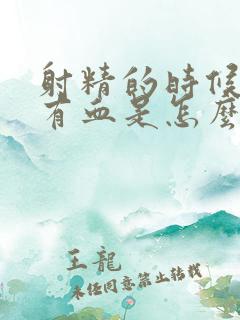 射精的時候
有血是怎麼
王龍
未經同意禁止转载